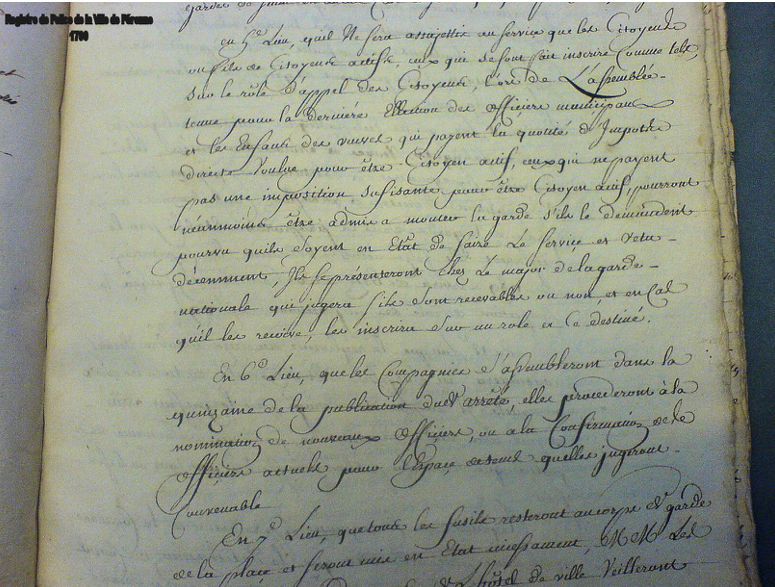 Registre de Police de la Ville de Péronne
1790
garde
en 5.º Lieu, quil Ne sera assujettis au service que les Citoyens
ou fils de Citoyens actifs, ceux qui se sont fait inscrire Comme tels,
sur le rôle d'appel des Citoyens, lors de L'assemblée
tenue pour la derniére Election des officiers municipaux
et les Enfants des veuves qui payent la quotité d'Impots
directe Voulue pour être Citoyen actif, ceux qui ne payent
pas une imposition sufisante pour être Citoyen actif, pourront
néanmoins être admis a monter la garde s'ils le demandent
pourvu quils soyent en Etat de faire Le service et vetu
décemment, Ils se présenteront chez Le major de la garde
nationale qui jugera s'ils sont recevables ou non, et en Cas
qu'il les reçoive, les inscrira sur un role a Ce destiné.
En 6.º Lieu, que les Compagnies s'assembleront dans la
quinzaine de la publication du dt arrêté, elles procederont à la
nomination de nouveaux officiers, ou a la Confirmation de
officiers actuels pour l'Espace de tems quelles jugeront
Convenable
En 7.º Lieu, que tous les fusils resteront au corps de garde
de la place et seront mis en Etat incessament, MM. Les
de L'hôtel de ville Veilleront